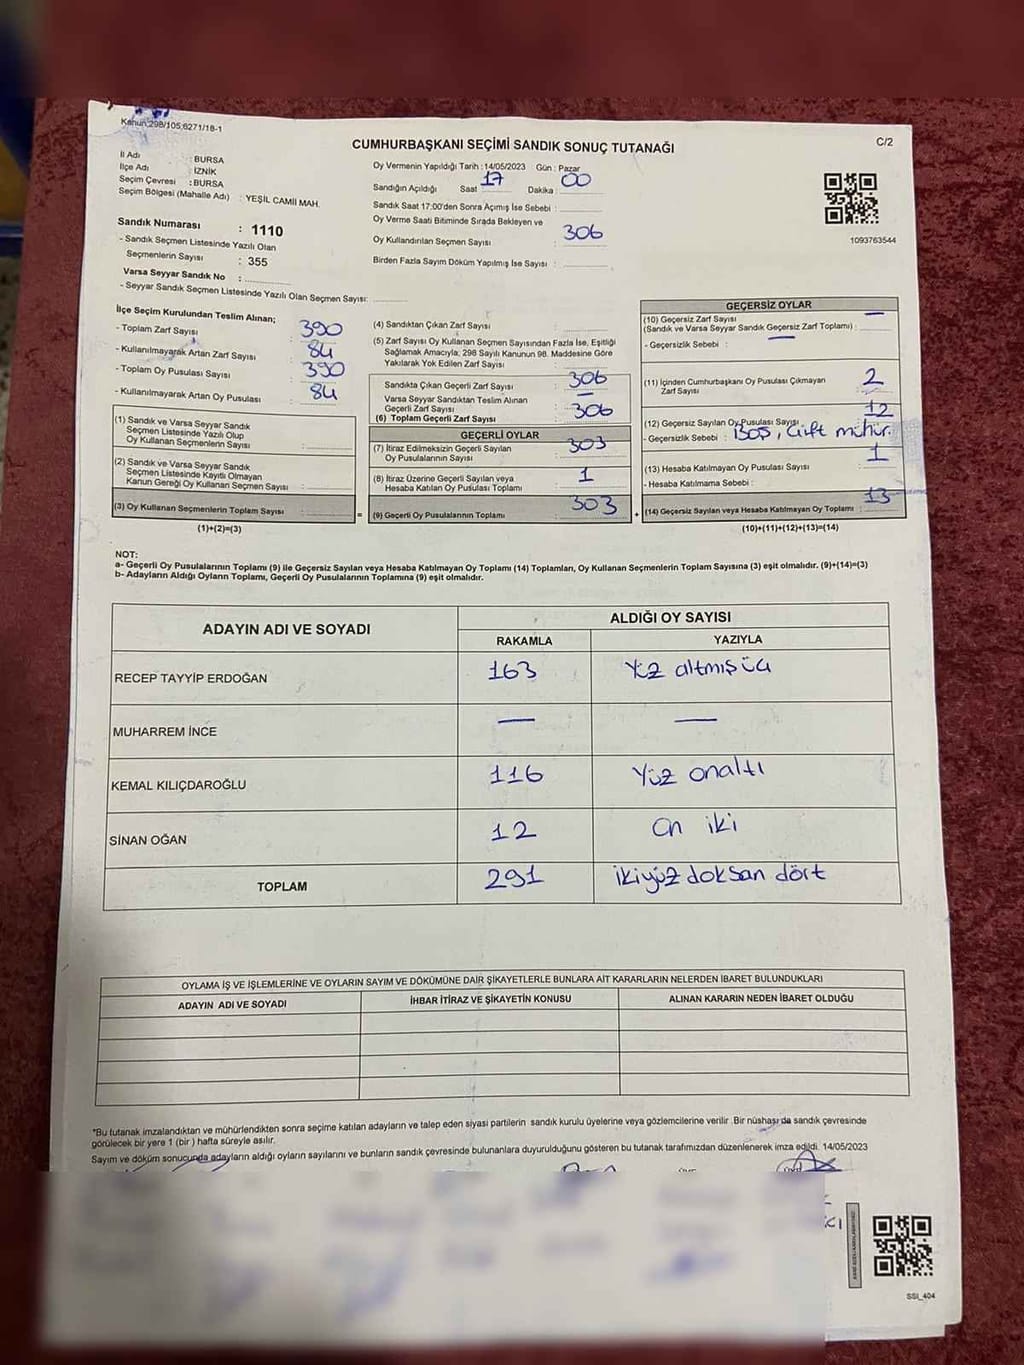 Kanun:298/105;6271/18-1
C/2
CUMHURBAŞKANI SEÇİMİ SANDIK SONUÇ TUTANAĞI
İl Adı : BURSA
İlçe Adı : İZNİK
Seçim Çevresi : BURSA
Seçim Bölgesi (Mahalle Adı) : YEŞİL CAMİİ MAH.
Oy Vermenin Yapıldığı Tarih : 14/05/2023 Gün : Pazar
Sandığın Açıldığı Saat 17 Dakika : 00
Sandık Saat 17:00'den Sonra Açımış İse Sebebi :
Oy Verme Saati Bitiminde Sırada Bekleyen ve
Oy Kullandırılan Seçmen Sayısı : 306
Birden Fazla Sayım Döküm Yapılmış İse Sayısı :
1093763544
Sandık Numarası : 1110
- Sandık Seçmen Listesinde Yazılı Olan
Seçmenlerin Sayısı : 355
Varsa Seyyar Sandık No :
- Seyyar Sandık Seçmen Listesinde Yazılı Olan Seçmen Sayısı:
İlçe Seçim Kurulundan Teslim Alınan;
- Toplam Zarf Sayısı : 390
- Kullanılmayarak Artan Zarf Sayısı : 84
- Toplam Oy Pusulası Sayısı : 390
- Kullanılmayarak Artan Oy Pusulası : 84
(1) Sandık ve Varsa Seyyar Sandık
Seçmen Listesinde Yazılı Olup
Oy Kullanan Seçmenlerin Sayısı :
(2) Sandık ve Varsa Seyyar Sandık
Seçmen Listesinde Kayıtlı Olmayan
Kanun Gereği Oy Kullanan Seçmen Sayısı :
(3) Oy Kullanan Seçmenlerin Toplam Sayısı :
(1)+(2)=(3)
=
(4) Sandıktan Çıkan Zarf Sayısı :
(5) Zarf Sayısı Oy Kullanan Seçmen Sayısından Fazla İse, Eşitliği
Sağlamak Amacıyla; 298 Sayılı Kanunun 98. Maddesine Göre
Yakılarak Yok Edilen Zarf Sayısı :
Sandıkta Çıkan Geçerli Zarf Sayısı : 306
Varsa Seyyar Sandıktan Teslim Alınan
Geçerli Zarf Sayısı : —
(6) Toplam Geçerli Zarf Sayısı : 306
GEÇERLİ OYLAR
(7) İtiraz Edilmeksizin Geçerli Sayılan
Oy Pusulalarının Sayısı : 303
(8) İtiraz Üzerine Geçerli Sayılan veya
Hesaba Katılan Oy Pusulası Toplamı : 1
(9) Geçerli Oy Pusulalarının Toplamı : 303
+
GEÇERSİZ OYLAR
(10) Geçersiz Zarf Sayısı —
(Sandık ve Varsa Seyyar Sandık Geçersiz Zarf Toplamı) :
- Geçersizlik Sebebi : —
(11) İçinden Cumhurbaşkanı Oy Pusulası Çıkmayan
Zarf Sayısı : 2
(12) Geçersiz Sayılan Oy Pusulası Sayısı : 12
- Geçersizlik Sebebi : Boş, Çift mühür.
(13) Hesaba Katılmayan Oy Pusulası Sayısı : 1
- Hesaba Katılmama Sebebi :
(14) Geçersiz Sayılan veya Hesaba Katılmayan Oy Toplamı : 13
(10)+(11)+(12)+(13)=(14)
NOT:
a- Geçerli Oy Pusulalarının Toplamı (9) ile Geçersiz Sayılan veya Hesaba Katılmayan Oy Toplamı (14) Toplamları, Oy Kullanan Seçmenlerin Toplam Sayısına (3) eşit olmalıdır. (9)+(14)=(3)
b- Adayların Aldığı Oyların Toplamı, Geçerli Oy Pusulalarının Toplamına (9) eşit olmalıdır.
ADAYIN ADI VE SOYADI
ALDIĞI OY SAYISI
RAKAMLA YAZIYLA
RECEP TAYYİP ERDOĞAN 163 Yüz altmış üç
MUHARREM İNCE — —
KEMAL KILIÇDAROĞLU 116 Yüz onaltı
SİNAN OĞAN 12 On iki
TOPLAM 291 ikiyüz doksan dört
OYLAMA İŞ VE İŞLEMLERİNE VE OYLARIN SAYIM VE DÖKÜMÜNE DAİR ŞİKAYETLERLE BUNLARA AİT KARARLARIN NELERDEN İBARET BULUNDUKLARI
ADAYIN ADI VE SOYADI İHBAR İTİRAZ VE ŞİKAYETİN KONUSU ALINAN KARARIN NEDEN İBARET OLDUĞU
*Bu tutanak imzalandıktan ve mühürlendikten sonra seçime katılan adayların ve talep eden siyasi partilerin sandık kurulu üyelerine veya gözlemcilerine verilir. Bir nüshası da sandık çevresinde
görülecek bir yere 1 (bir) hafta süreyle asılır.
Sayım ve döküm sonucunda adayların aldığı oyların sayılarını ve bunların sandık çevresinde bulunanlara duyurulduğunu gösteren bu tutanak tarafımızdan düzenlenerek imza edildi. 14/05/2023
SSI_404